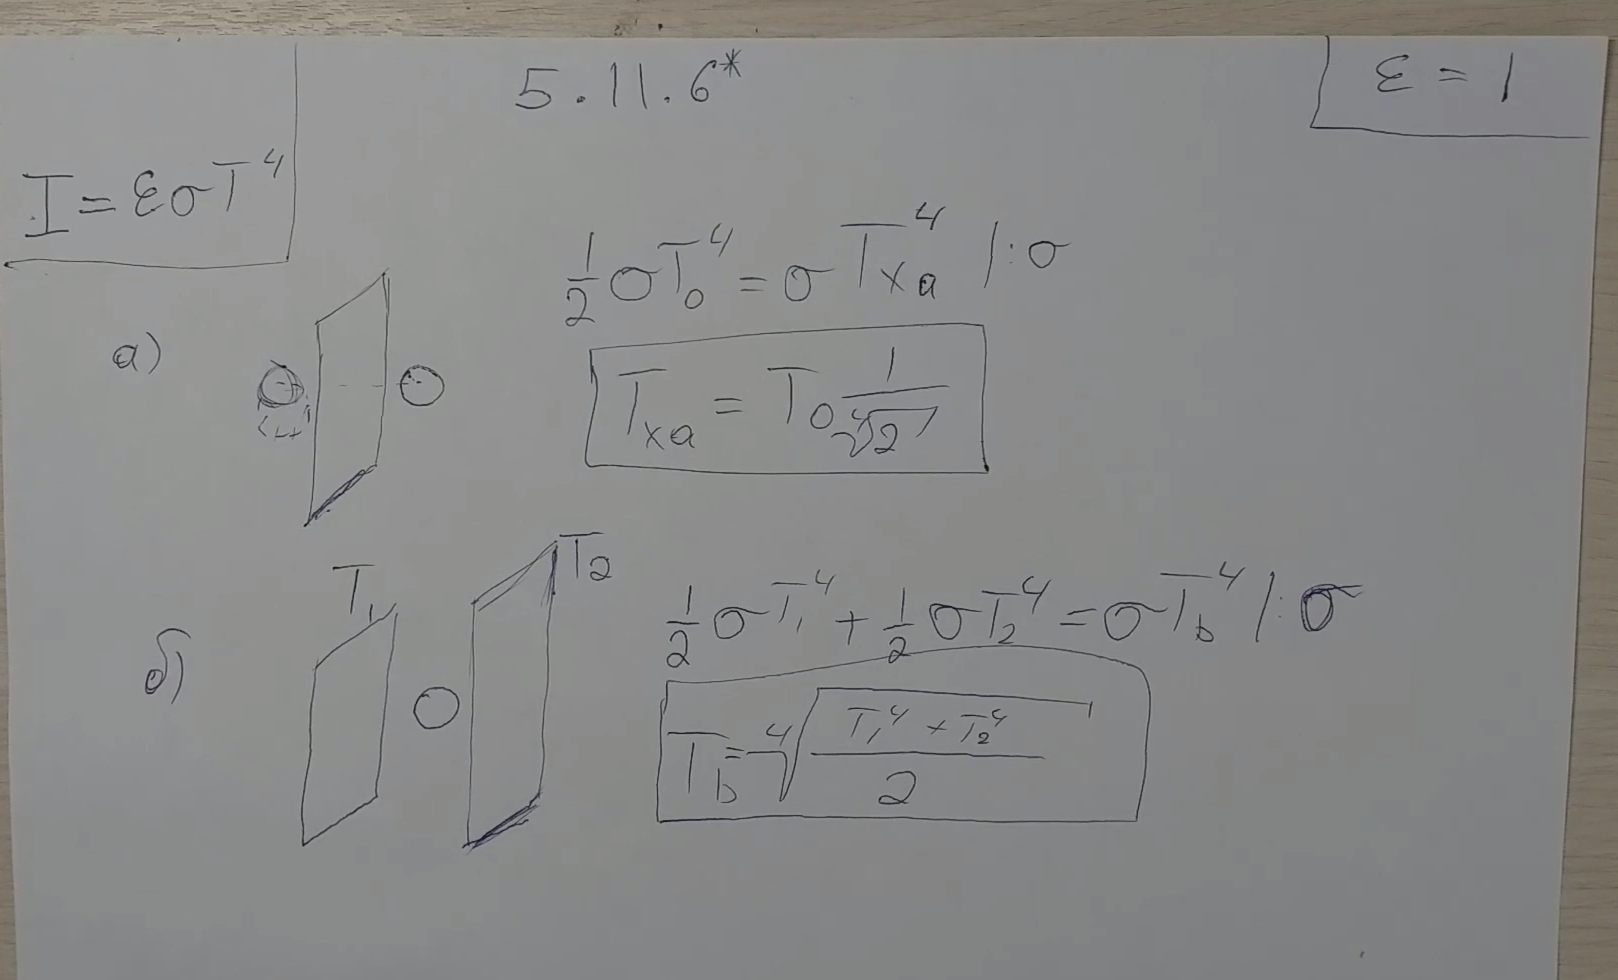 5.11.6*
ε = 1
I = εσT⁴
а)
½σT₀⁴ = σTₓₐ⁴ | : σ
Tₓₐ = T₀ 1/⁴√2
б)
T₁
T₂
½σT₁⁴ + ½σT₂⁴ = σT_b⁴ | : σ
T_b = ⁴√((T₁⁴ + T₂⁴)/2)